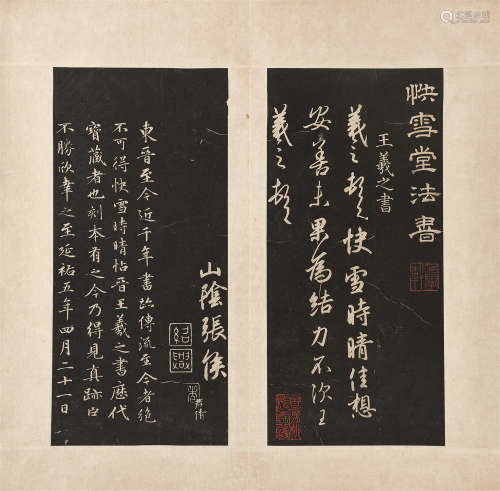 快雪堂法書
王羲之書
羲之頓首快雪時晴佳想
安善未果為結力不次王
羲之頓首
山陰張侯
東晉至今近千年書跡傳流至今者絕
不可得快雪時晴帖晉王羲之書歷代
寶藏者也刻本有之今乃得見真跡臣
不勝欣幸之至延祐五年四月二十一日